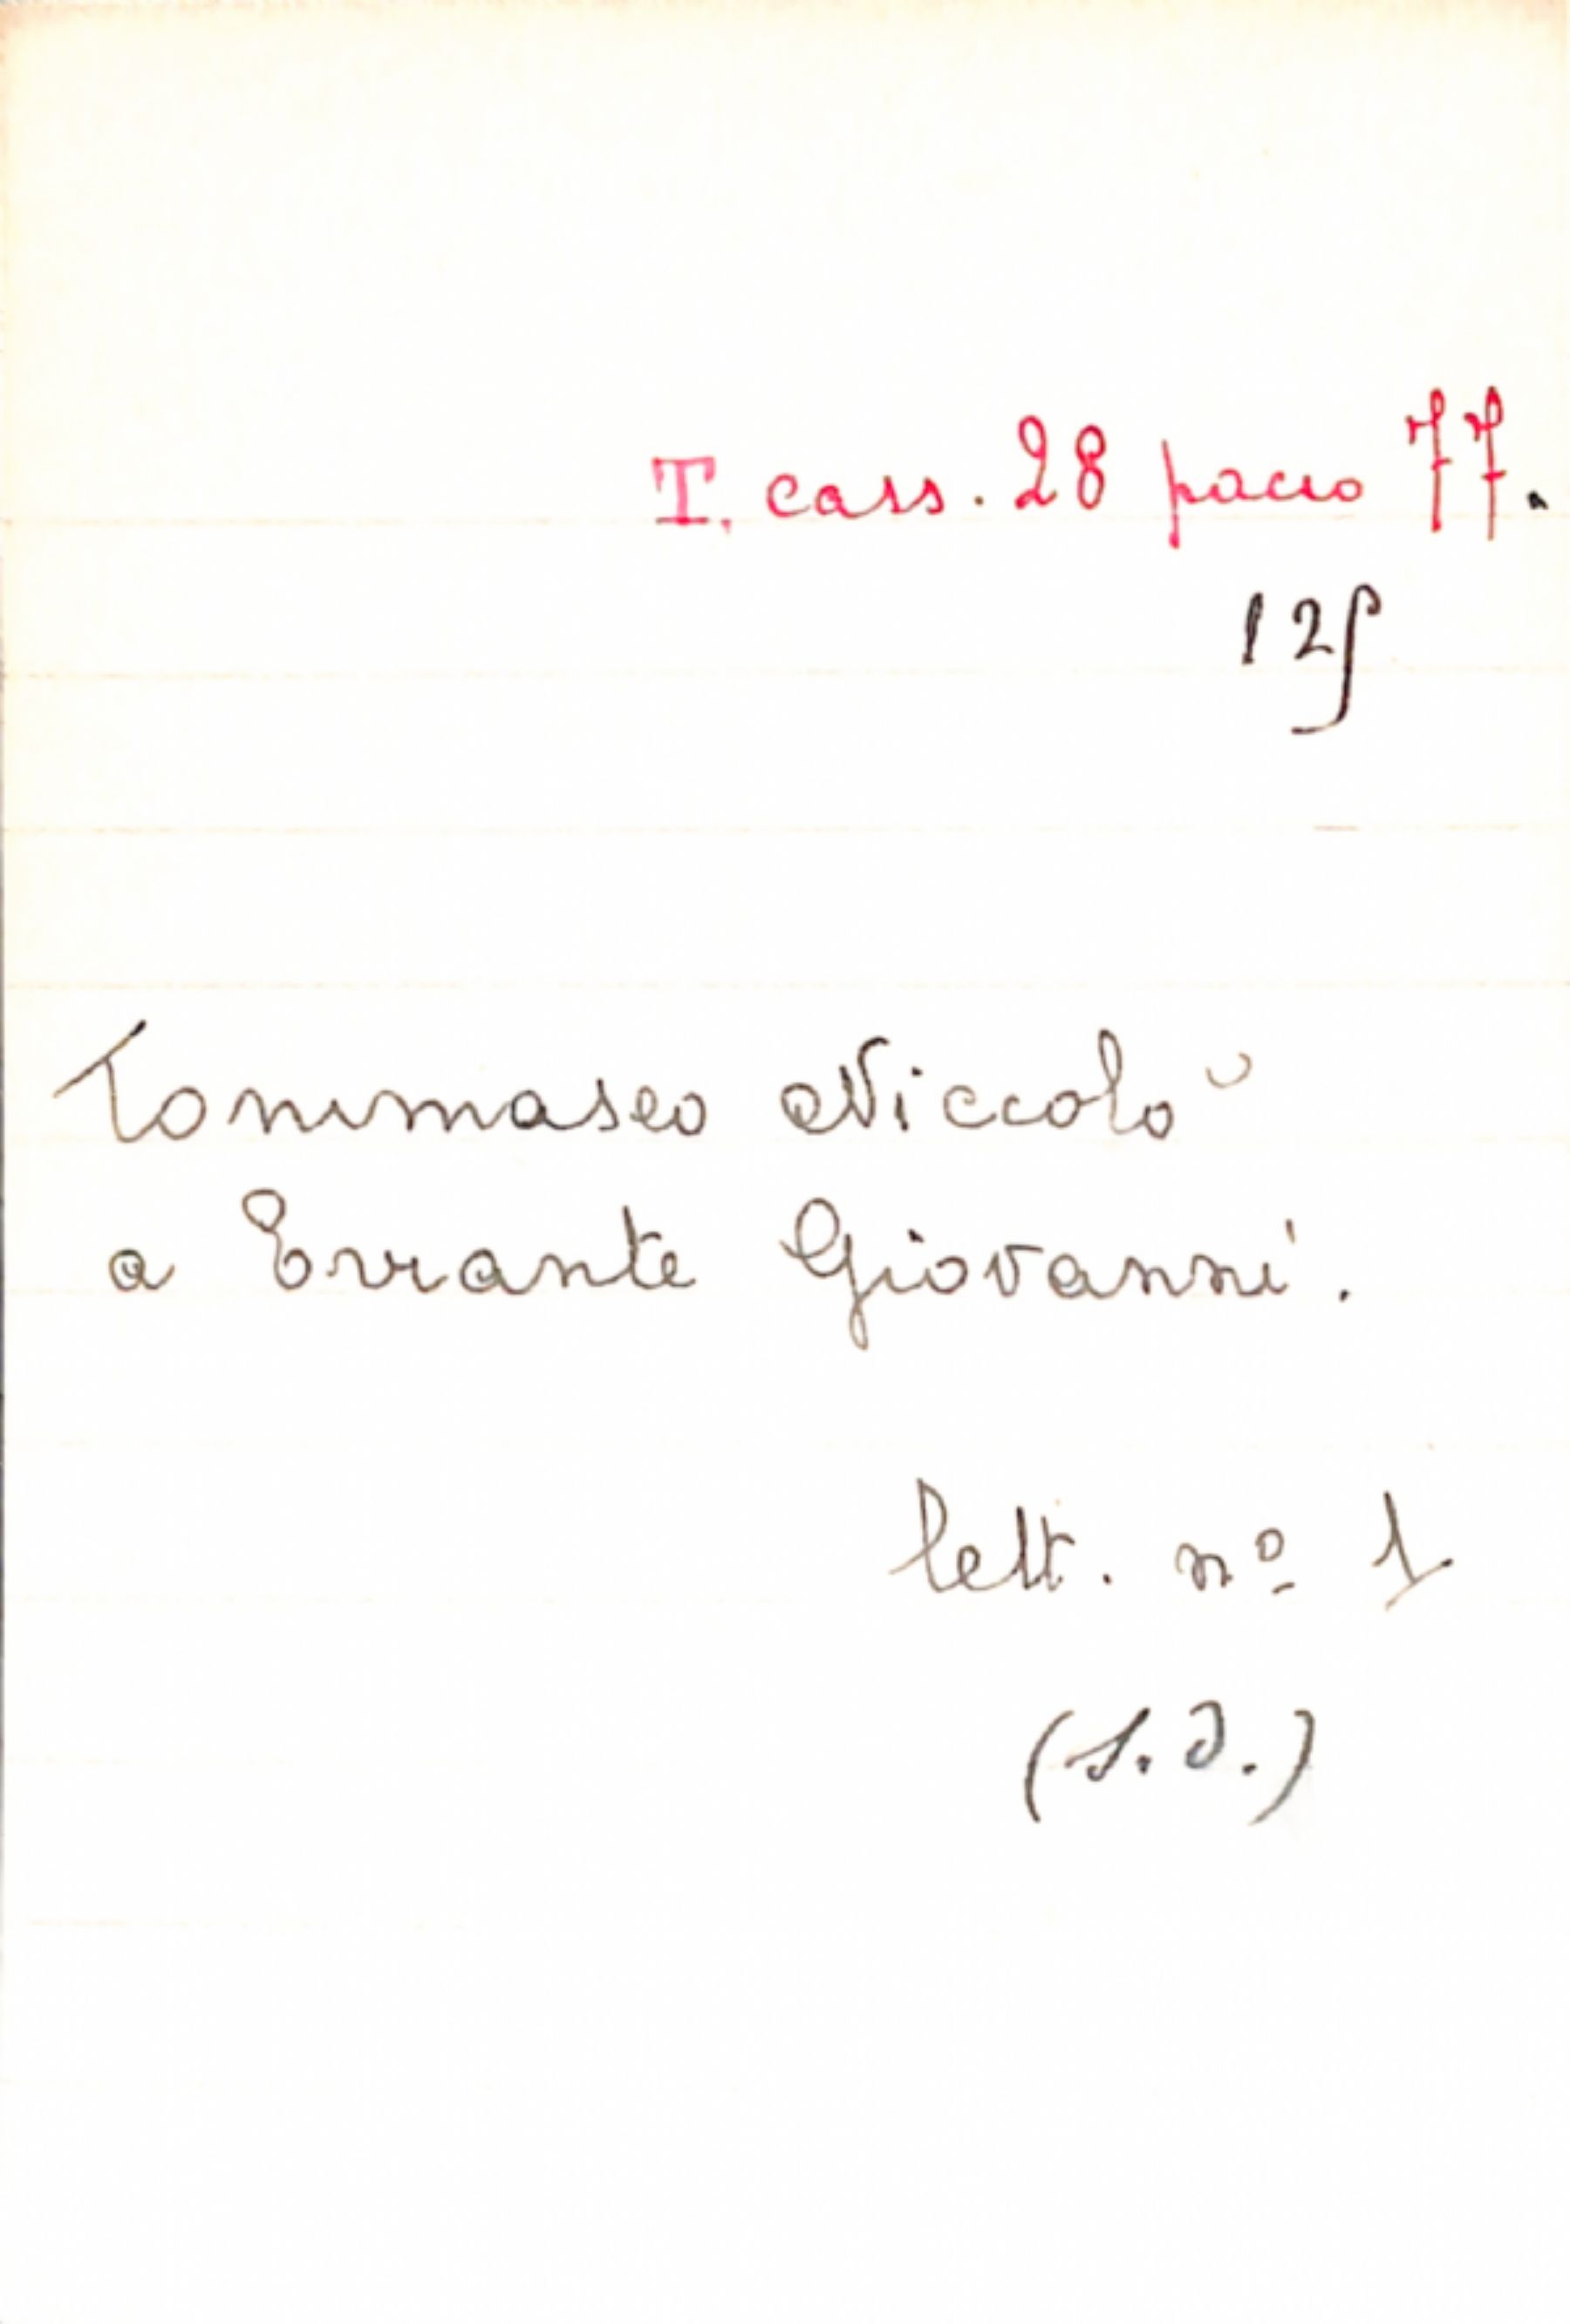 T. cass. 28 pacco 77.
125
Tommaseo Niccolò
a Errante Giovanni.
lett. nº 1
(s.d.)